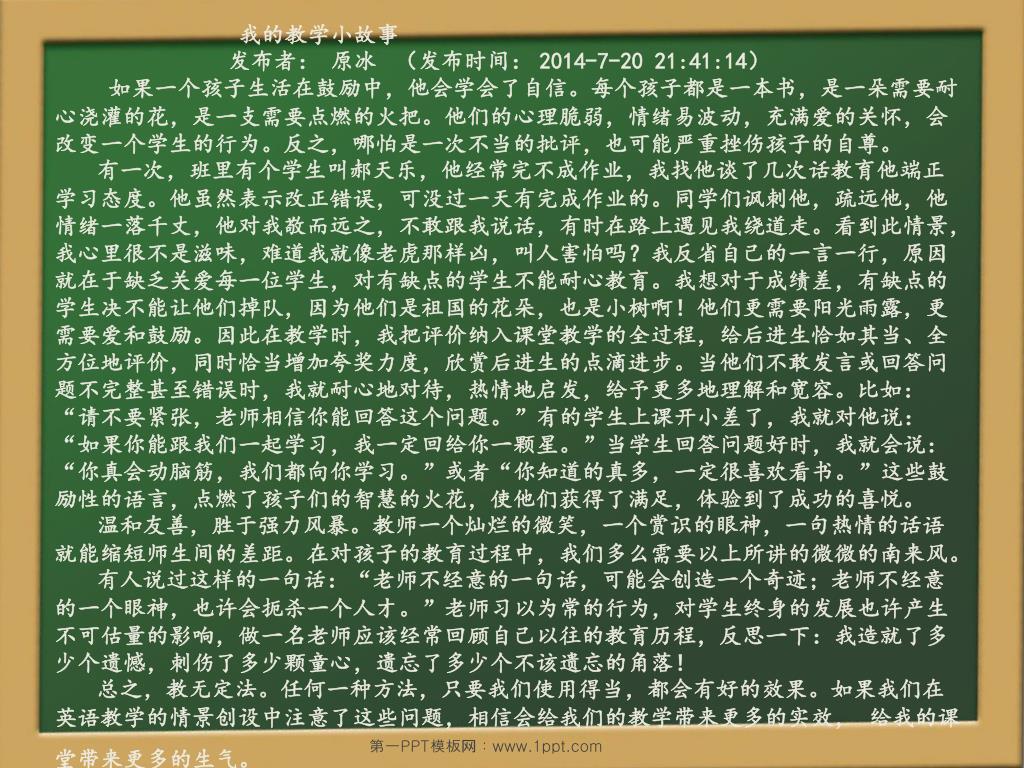 我的教学小故事
发布者： 原冰 （发布时间： 2014-7-20 21:41:14）
如果一个孩子生活在鼓励中，他会学会了自信。每个孩子都是一本书，是一朵需要耐
心浇灌的花，是一支需要点燃的火把。他们的心理脆弱，情绪易波动，充满爱的关怀，会
改变一个学生的行为。反之，哪怕是一次不当的批评，也可能严重挫伤孩子的自尊。
有一次，班里有个学生叫郝天乐，他经常完不成作业，我找他谈了几次话教育他端正
学习态度。他虽然表示改正错误，可没过一天有完成作业的。同学们讽刺他，疏远他，他
情绪一落千丈，他对我敬而远之，不敢跟我说话，有时在路上遇见我绕道走。看到此情景，
我心里很不是滋味，难道我就像老虎那样凶，叫人害怕吗？我反省自己的一言一行，原因
就在于缺乏关爱每一位学生，对有缺点的学生不能耐心教育。我想对于成绩差，有缺点的
学生决不能让他们掉队，因为他们是祖国的花朵，也是小树啊！他们更需要阳光雨露，更
需要爱和鼓励。因此在教学时，我把评价纳入课堂教学的全过程，给后进生恰如其当、全
方位地评价，同时恰当增加夸奖力度，欣赏后进生的点滴进步。当他们不敢发言或回答问
题不完整甚至错误时，我就耐心地对待，热情地启发，给予更多地理解和宽容。比如：
“请不要紧张，老师相信你能回答这个问题。”有的学生上课开小差了，我就对他说：
“如果你能跟我们一起学习，我一定回给你一颗星。”当学生回答问题好时，我就会说：
“你真会动脑筋，我们都向你学习。”或者“你知道的真多，一定很喜欢看书。”这些鼓
励性的语言，点燃了孩子们的智慧的火花，使他们获得了满足，体验到了成功的喜悦。
温和友善，胜于强力风暴。教师一个灿烂的微笑，一个赏识的眼神，一句热情的话语
就能缩短师生间的差距。在对孩子的教育过程中，我们多么需要以上所讲的微微的南来风。
有人说过这样的一句话：“老师不经意的一句话，可能会创造一个奇迹；老师不经意
的一个眼神，也许会扼杀一个人才。”老师习以为常的行为，对学生终身的发展也许产生
不可估量的影响，做一名老师应该经常回顾自己以往的教育历程，反思一下：我造就了多
少个遗憾，刺伤了多少颗童心，遗忘了多少个不该遗忘的角落！
总之，教无定法。任何一种方法，只要我们使用得当，都会有好的效果。如果我们在
英语教学的情景创设中注意了这些问题，相信会给我们的教学带来更多的实效， 给我的课
堂带来更多的生气。
第一PPT模板网：www.1ppt.com